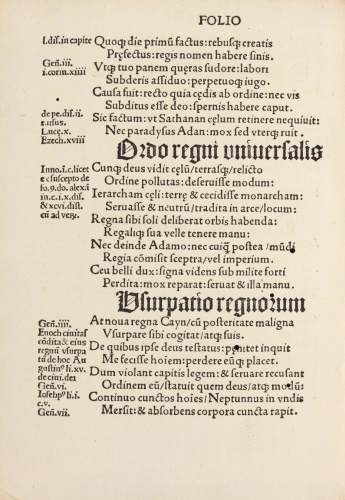 FOLIO
I.dis.in capite
Quoqȝ die primū factus:rebusqȝ creatis
Pręfectus:regis nomen habere sinis.
Geñ.iii.
Vtqȝ tuo panem quęras sudore:labori
i.corin.xiiii
Subderis assiduo: perpetuoqȝ iugo.
Causa fuit:recto quia cędis ab ordine:nec vis
Subditus esse deo: spernis habere caput.
de pe.dis.ii
Sic factum:vt Sathanan cęlum retinere nequiuit:
Lucę.x.
Nec paradysus Adan:mox sed vterqȝ ruit.
Ezech.xviii
Ordo regni vniuersalis
Inno.i.c.licet
Cunqȝ deus vidit cęlū/terrasqȝ/relicto
e suscepto de
Ordine pollutas: deseruisse modum:
fo.9.do.alexā
Ierarcham cęli:terrę & cecidisse monarcham:
in.c.i.x.dis.
Seruasse & neutrū/tradita in arce/locum:
& xcvi.dist.
Regna sibi soli deliberat orbis habenda:
cū ad verȝ.
Regaliqȝ sua velle tenere manu:
Nec deinde Adamo:nec cuiqȝ postea /mūdi
Regia cōmisit sceptra/vel imperium.
Ceu belli dux: signa videns sub milite forti
Perdita: mox reparat:seruat & illa manu.
Vsurpatio regnorum
Geñ.iiii.
At noua regna Cayn/cū posteritate maligna
Enoch ciuitas
Vsurpare sibi cogitat/atqȝ suis.
cōdita & eius
regnū vsurpa
De quibus ipse deus testatus: pœnitet inquit
tū de hoc Au
Me fecisse hoīem:perdere euqȝ placet.
gustinꝰ li.xv.
Dum violant capitis legem: & seruare recusant
de ciui.dei
Geñ.vi.
Ordinem eū/statuit quem deus/atqȝ modū:
Iosephꝰ li.i.
Continuo cunctos hoīes/Neptunnus in vndis
c.v.
Geñ.vii.
Mersit: & absorbens corpora cuncta rapit.